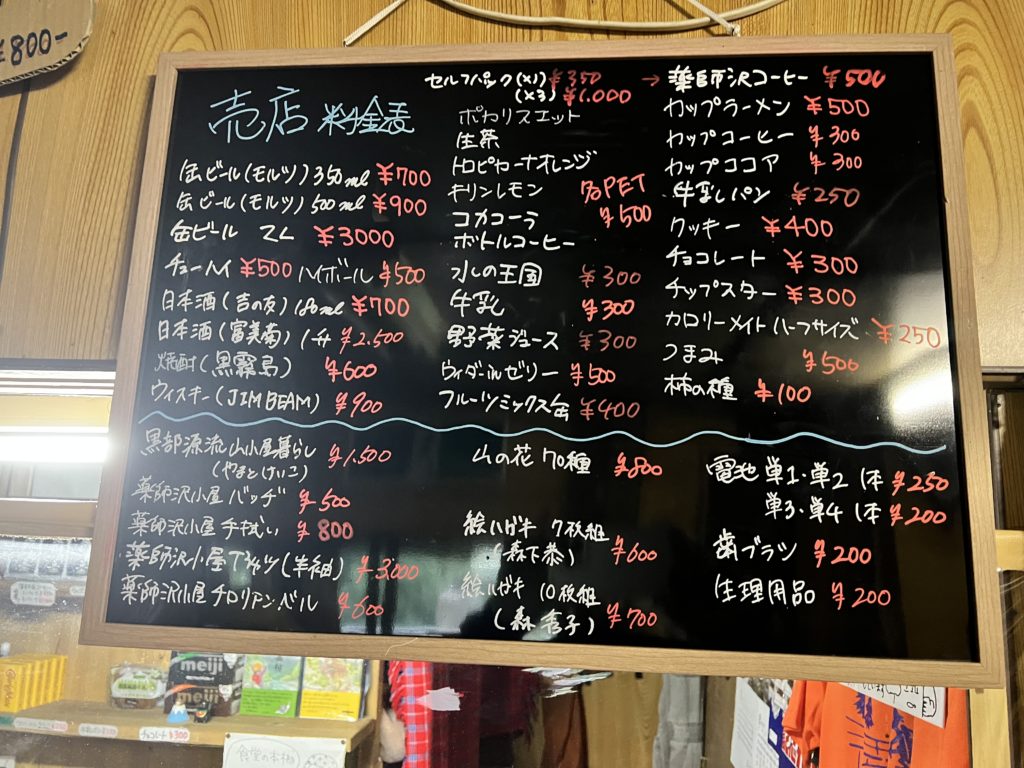 ¥800-
売店 料金表
缶ビール(モルツ)350ml ¥700
缶ビール(モルツ)500ml ¥900
缶ビール 2L ¥3000
チューハイ ¥500 ハイボール ¥500
日本酒(吉の友)180ml ¥700
日本酒(富美菊)1升 ¥2,500
焼酎(黒霧島) ¥600
ウィスキー(JIM BEAM) ¥900
セルフパック(×1) ¥350
(×3) ¥1,000
ポカリスエット
生茶
トロピカーナオレンジ
キリンレモン
コカコーラ
ボトルコーヒー
各PET
¥500
水の王国 ¥300
牛乳 ¥300
野菜ジュース ¥300
ウィダーinゼリー ¥500
フルーツミックス缶 ¥400
→ 薬師沢コーヒー ¥500
カップラーメン ¥500
カップコーヒー ¥300
カップココア ¥300
牛乳パン ¥250
クッキー ¥400
チョコレート ¥300
チップスター ¥300
カロリーメイト ハーフサイズ ¥250
つまみ ¥500
柿の種 ¥100
黒部源流山小屋暮らし ¥1,500
(やまとけいこ)
薬師沢小屋 バッヂ ¥500
薬師沢小屋 手拭い ¥800
薬師沢小屋Tシャツ(半袖) ¥3,000
薬師沢小屋 チロリアンベル ¥600
山の花 70種 ¥800
絵ハガキ 7枚組
(森下恭) ¥600
絵ハガキ 10枚組
¥700
電池 単1・単2 1本 ¥250
単3・単4 1本 ¥200
歯ブラシ ¥200
生理用品 ¥200
meiji
meiji
チョコレート ¥300
食堂の本棚